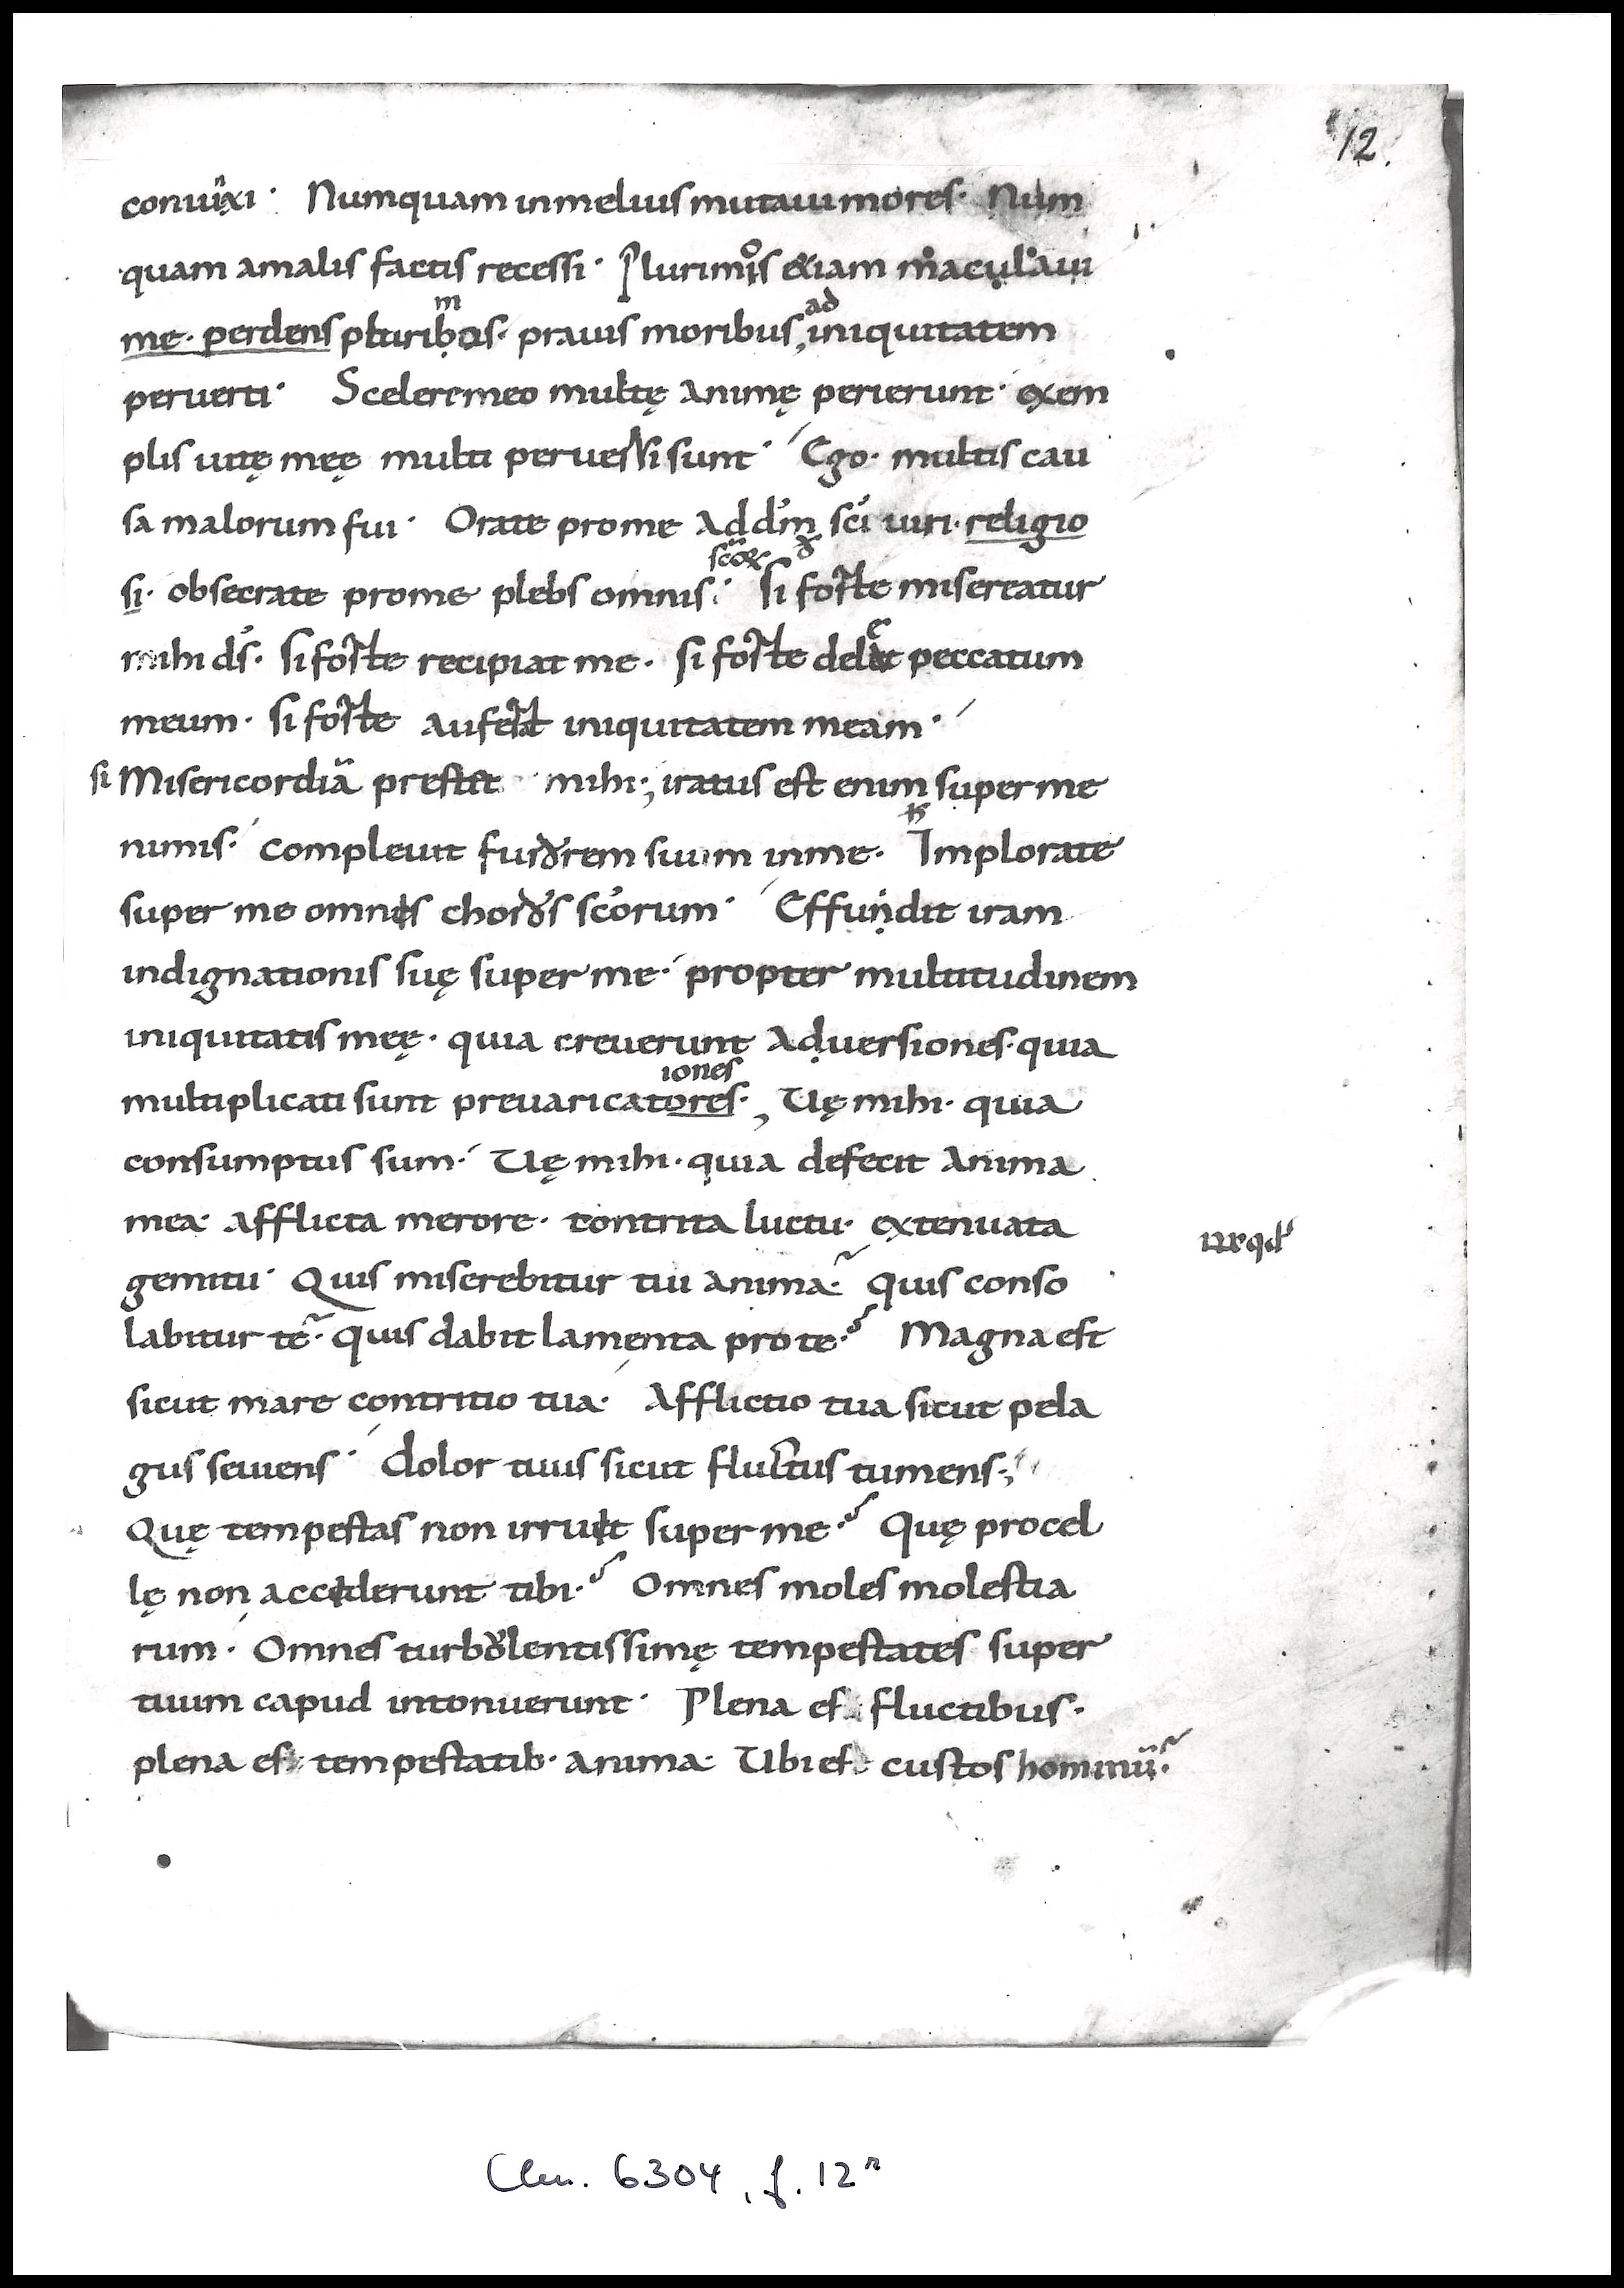 12.
conuixi· Numquam inmelius mutaui mores· Num
quam amalis factis recessi· Plurimis &iam maculaui
me· perdens pluribus· prauis moribus, ad iniquitatem
peruerti· Scelere meo multę animę perierunt· exem
plis uitę meę multi peruersi sunt· Ego· multis cau
sa malorum fui· Orate prome addm̄ sc̄i uiri· religio
scōꝝ
si· obsecrate prome plebs omnis· si forte misereatur
mihi ds̄· si forte recipiat me· si forte deleat peccatum
meum· si forte auferat iniquitatem meam·
si Misericordiā prestat mihi·, iratus est enim super me
nimis· compleuit furorem suum inme· Implorate
super me omnes choros sc̄orum· Effundit iram
indignationis suę super me· propter multitudinem
iniquitatis meę· quia creuerunt aduersiones· quia
iones
multiplicati sunt preuaricatores·, Uę mihi· quia
consumptus sum· Uę mihi· quia defecit anima
mea· afflicta merore· contrita luctu· extenuata
gemitu· Quis miserebitur tui anima· quis conso
labitur te· quis dabit lamenta pro te· Magna est
sicut mare contritio tua· Afflictio tua sicut pela
gus seuiens· dolor tuus sicut fluctus tumens·,
Quę tempestas non irruit super me· Quę procel
lę non acciderunt tibi· Omnes moles molestia
rum· Omnes turbolentissimę tempestates super
tuum capud intonuerunt· Plena es fluctibus·
plena es tempestatib· anima· Ubi es custos hominū·
Clm. 6304, f. 12r